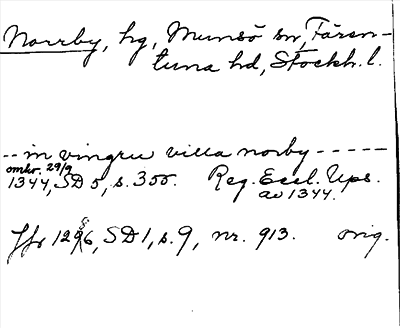 Norrby, hg, Munsö sn, Fären-
tuna hd, Stockh. l.
-- in vingru villa norby -----
omkr. 29/9
1344, SD 5, s. 355. Reg. Eccl. Ups.
av 1344.
Jfr 1296, SD 1, s. 9, nr. 913. orig.